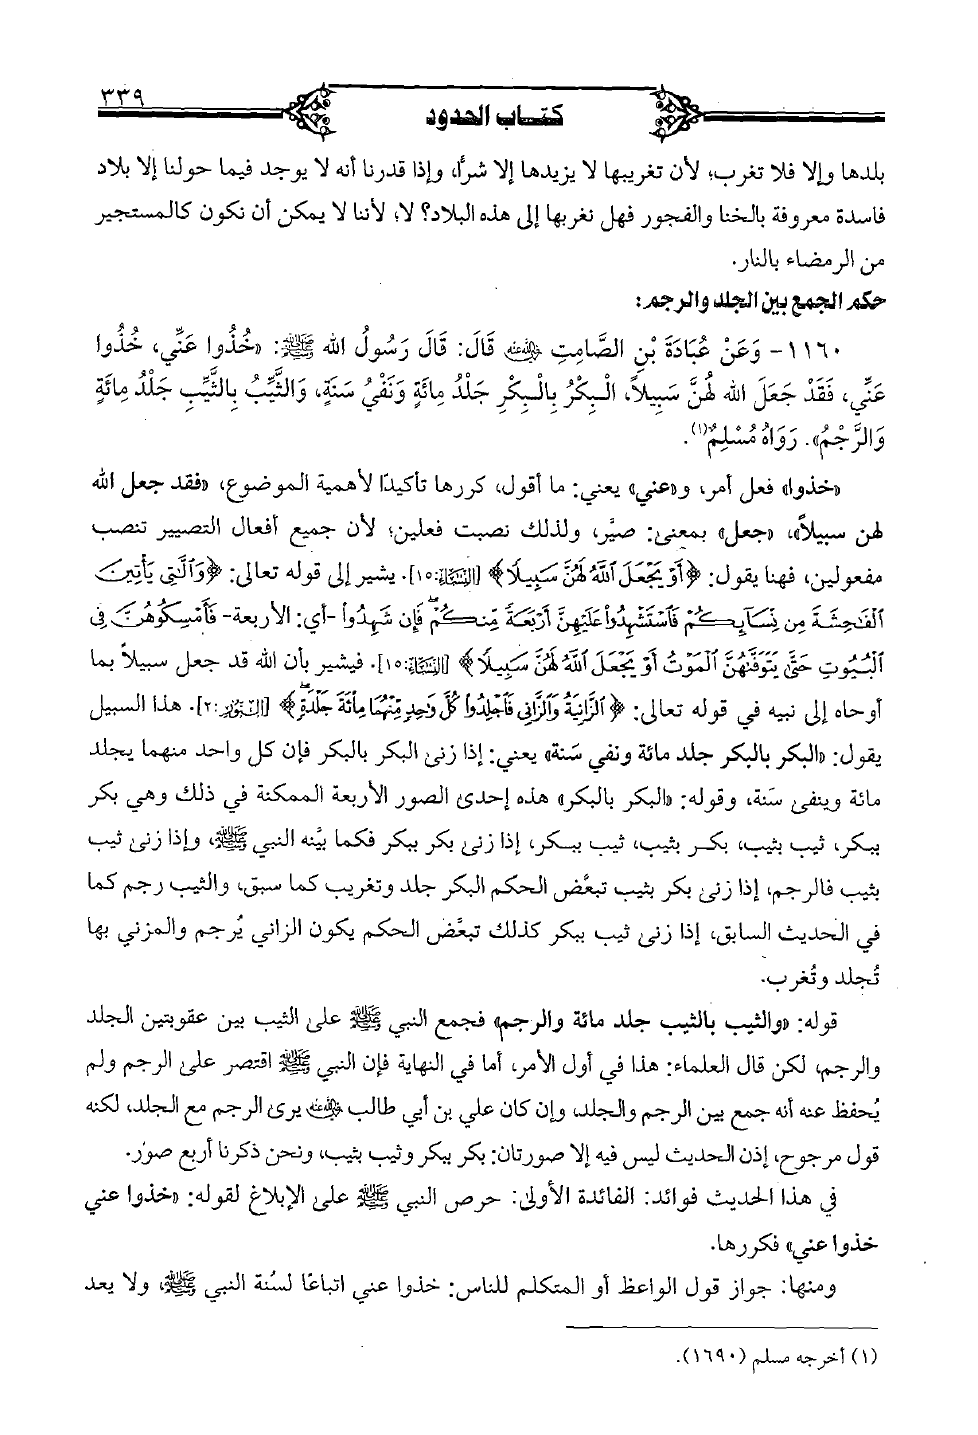 ٣٣٩
كتاب الحدود
بلدها وإلا فلا تغرب؛ لأن تغريبها لا يزيدها إلا شراً، وإذا قدرنا أنه لا يوجد فيما حولنا إلا بلاد
فاسدة معروفة بالخنا والفجور فهل نغربها إلى هذه البلاد؟ لا؛ لأننا لا يمكن أن نكون كالمستجير
من الرمضاء بالنار.
حكم الجمع بين الجلد والرجم:
١١٦٠- وَعَنْ عُبَادَةَ بْنِ الصَّامِتِ رضي الله عنه قَالَ: قَالَ رَسُولُ الله ﷺ: «خُذُوا عَنِّي، خُذُوا
عَنِّي، فَقَدْ جَعَلَ الله لَهُنَّ سَبِيلاً، الْبِكْرُ بِالْبِكْرِ جَلْدُ مِائَةٍ وَنَفْيُ سَنَةٍ، وَالثَّيِّبُ بِالثَّيِّبِ جَلْدُ مِائَةٍ
وَالرَّجْمُ». رَوَاهُ مُسْلِمٌ(١).
«خذوا» فعل أمر، و«عني» يعني: ما أقول، كررها تأكيدًا لأهمية الموضوع، «فقد جعل الله
لهن سبيلاً»، «جعل» بمعنى: صيَّر، ولذلك نصبت فعلين؛ لأن جميع أفعال التصيير تنصب
مفعولين، فهنا يقول: ﴿أَوْ يَجْعَلَ ٱللَّهُ لَهُنَّ سَبِيلًا﴾ [النساء:١٥]. يشير إلى قوله تعالى: ﴿وَٱلَّٰتِى يَأْتِينَ
ٱلْفَٰحِشَةَ مِن نِّسَآئِكُمْ فَٱسْتَشْهِدُوا۟ عَلَيْهِنَّ أَرْبَعَةً مِّنكُمْ ۖ فَإِن شَهِدُوا۟ -أي: الأربعة- فَأَمْسِكُوهُنَّ فِى
ٱلْبُيُوتِ حَتَّىٰ يَتَوَفَّىٰهُنَّ ٱلْمَوْتُ أَوْ يَجْعَلَ ٱللَّهُ لَهُنَّ سَبِيلًا﴾ [النساء:١٥]. فيشير بأن الله قد جعل سبيلاً بما
أوحاه إلى نبيه في قوله تعالى: ﴿ٱلزَّانِيَةُ وَٱلزَّانِى فَٱجْلِدُوا۟ كُلَّ وَٰحِدٍ مِّنْهُمَا مِا۟ئَةَ جَلْدَةٍ ۖ﴾ [النور:٢]. هذا السبيل
يقول: «البكر بالبكر جلد مائة ونفي سَنة» يعني: إذا زنى البكر بالبكر فإن كل واحد منهما يجلد
مائة وينفى سَنة، وقوله: «البكر بالبكر» هذه إحدى الصور الأربعة الممكنة في ذلك وهي بكر
ببكر، ثيب بثيب، بكر بثيب، ثيب ببكر، إذا زنى بكر ببكر فكما بيَّنه النبي ﷺ، وإذا زنى ثيب
بثيب فالرجم، إذا زنى بكر بثيب تبعَّض الحكم البكر جلد وتغريب كما سبق، والثيب رجم كما
في الحديث السابق، إذا زنى ثيب ببكر كذلك تبعَّض الحكم يكون الزاني يُرجم والمزني بها
تُجلد وتُغرب.
قوله: «والثيب بالثيب جلد مائة والرجم» فجمع النبي ﷺ على الثيب بين عقوبتين الجلد
والرجم، لكن قال العلماء: هذا في أول الأمر، أما في النهاية فإن النبي ﷺ اقتصر على الرجم ولم
يُحفظ عنه أنه جمع بين الرجم والجلد، وإن كان علي بن أبي طالب رضي الله عنه يرى الرجم مع الجلد، لكنه
قول مرجوح، إذن الحديث ليس فيه إلا صورتان: بكر ببكر وثيب بثيب، ونحن ذكرنا أربع صوَر.
في هذا الحديث فوائد: الفائدة الأولى: حرص النبي ﷺ على الإبلاغ لقوله: «خذوا عني
خذوا عني» فكررها.
ومنها: جواز قول الواعظ أو المتكلم للناس: خذوا عني اتباعًا لسُنة النبي ﷺ، ولا يعد
(١) أخرجه مسلم (١٦٩٠).